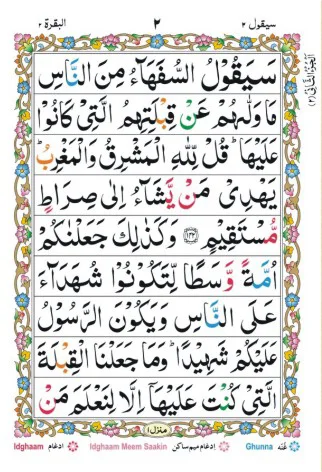 البقرة ٢ ٢ سيقول ٢
اَلْجُزْءُ الثَّانِيْ (٢)
سَيَقُوْلُ السُّفَهَآءُ مِنَ النَّاسِ
مَا وَلّٰىهُمْ عَنْ قِبْلَتِهِمُ الَّتِىْ كَانُوْا
عَلَيْهَا ؕ قُلْ لِّلّٰهِ الْمَشْرِقُ وَالْمَغْرِبُ ؕ
يَهْدِىْ مَنْ يَّشَآءُ اِلٰى صِرَاطٍ
مُّسْتَقِيْمٍ ﴿۱۴۲﴾ وَكَذٰلِكَ جَعَلْنٰكُمْ
اُمَّةً وَّسَطًا لِّتَكُوْنُوْا شُهَدَآءَ
عَلَى النَّاسِ وَيَكُوْنَ الرَّسُوْلُ
عَلَيْكُمْ شَهِيْدًا ؕ وَمَا جَعَلْنَا الْقِبْلَةَ
الَّتِىْ كُنْتَ عَلَيْهَآ اِلَّا لِنَعْلَمَ مَنْ
منزل ۱
Idghaam ادغام Idghaam Meem Saakin ادغام میم ساکن Ghunna غنّہ